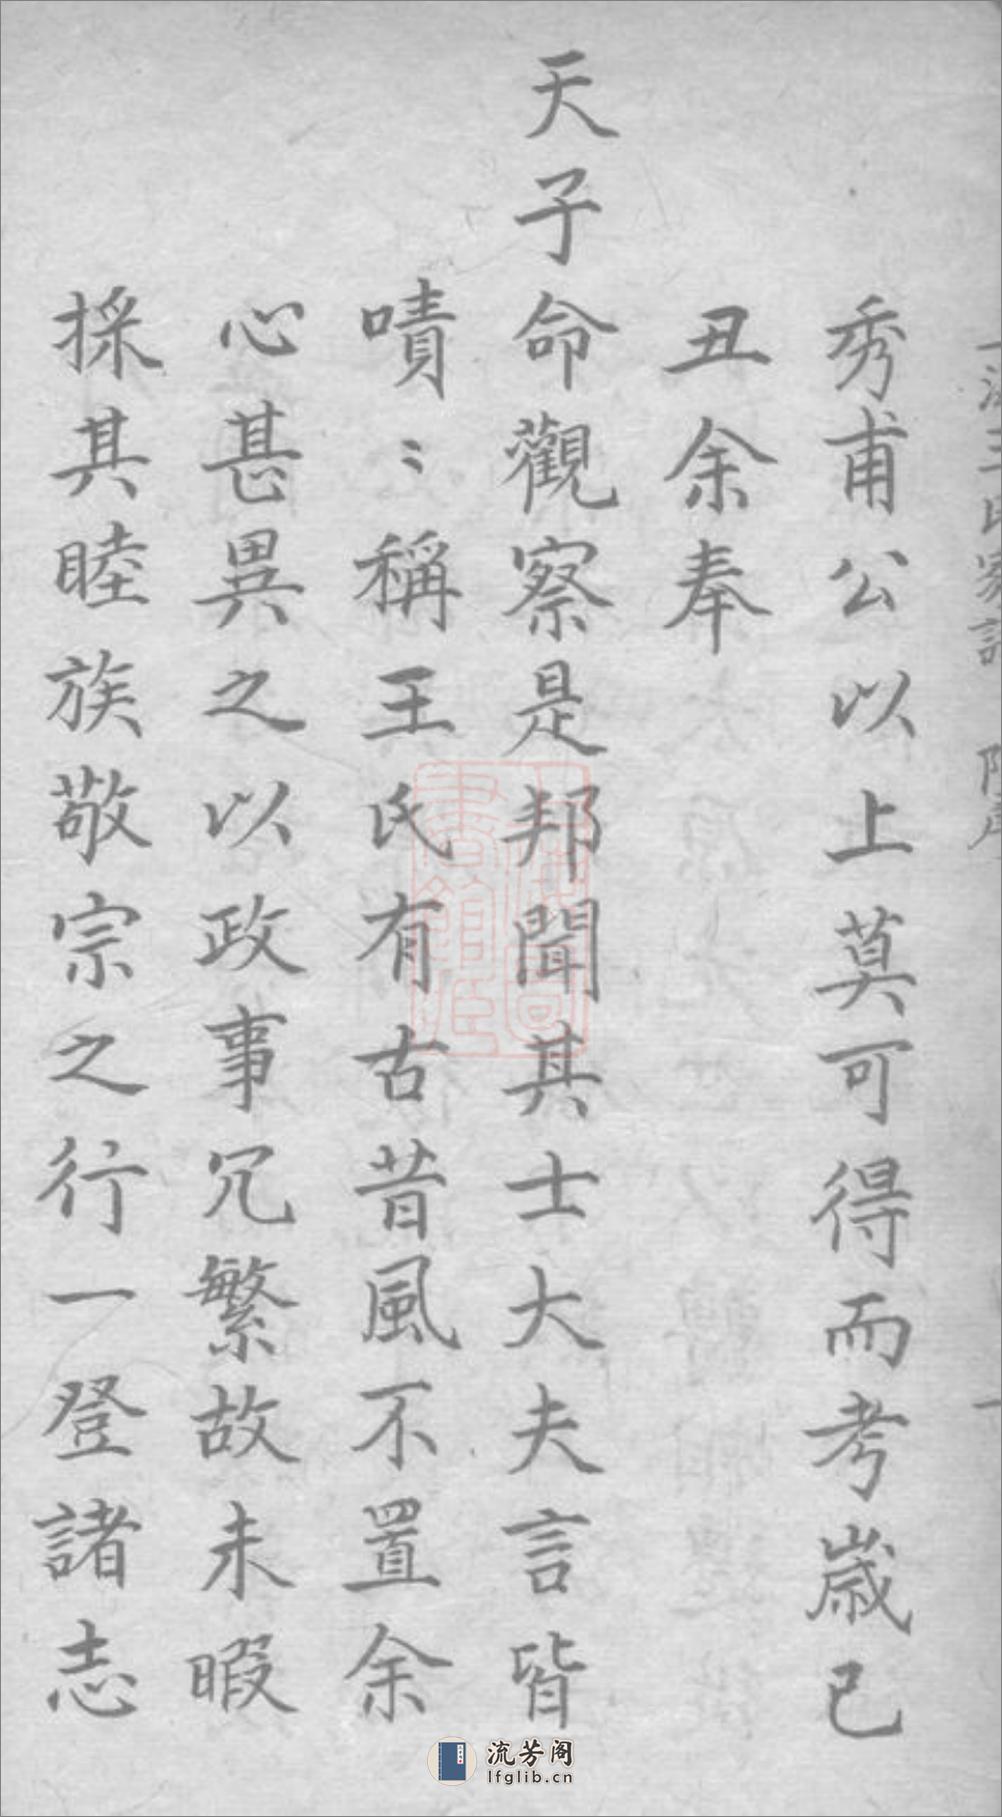 秀甫公以上莫可得而考歲己
丑余奉
天子命觀察是邦聞其士大夫言皆
嘖〻稱王氏有古昔風不置余
心甚異之以政事冗繁故未暇
採其睦族敬宗之行一登諸志
流芳阁
lfglib.cn